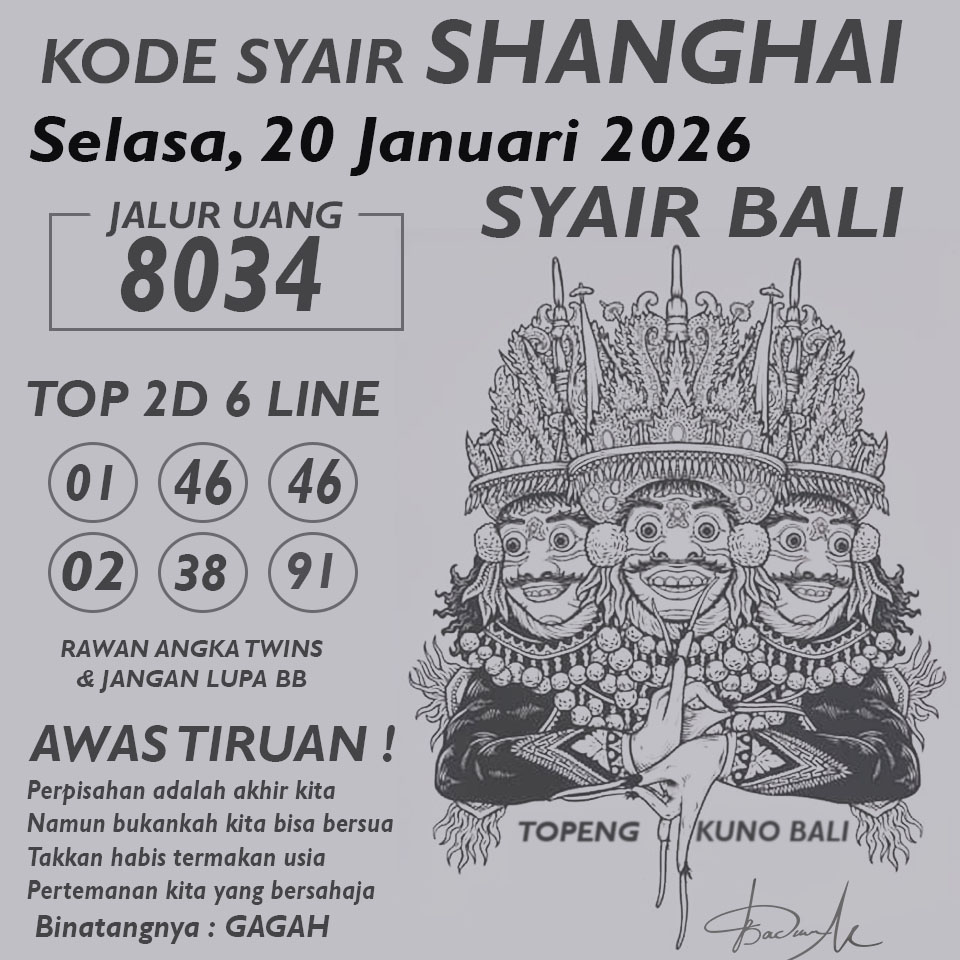 KODE SYAIR SHANGHAI
Selasa, 20 Januari 2026
SYAIR BALI
JALUR UANG
8034
TOP 2D 6 LINE
01 46 46
02 38 91
RAWAN ANGKA TWINS
& JANGAN LUPA BB
AWAS TIRUAN !
Perpisahan adalah akhir kita
Namun bukankah kita bisa bersua
Takkan habis termakan usia
Pertemanan kita yang bersahaja
Binatangnya : GAGAH
TOPENG KUNO BALI